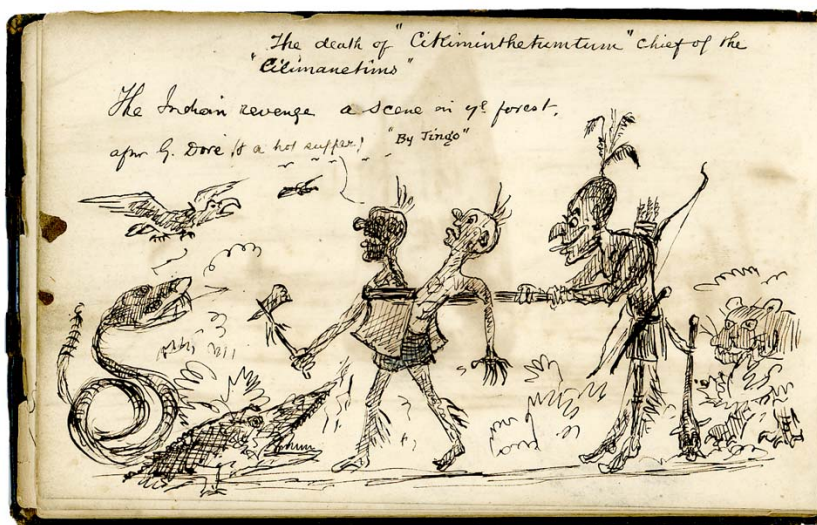 The death of "Citliminthetumtum" chief of the
"Cilimanetims"
The Indian revenge a scene in ye forest.
after G. Doré & a hot supper! "By Jingo"